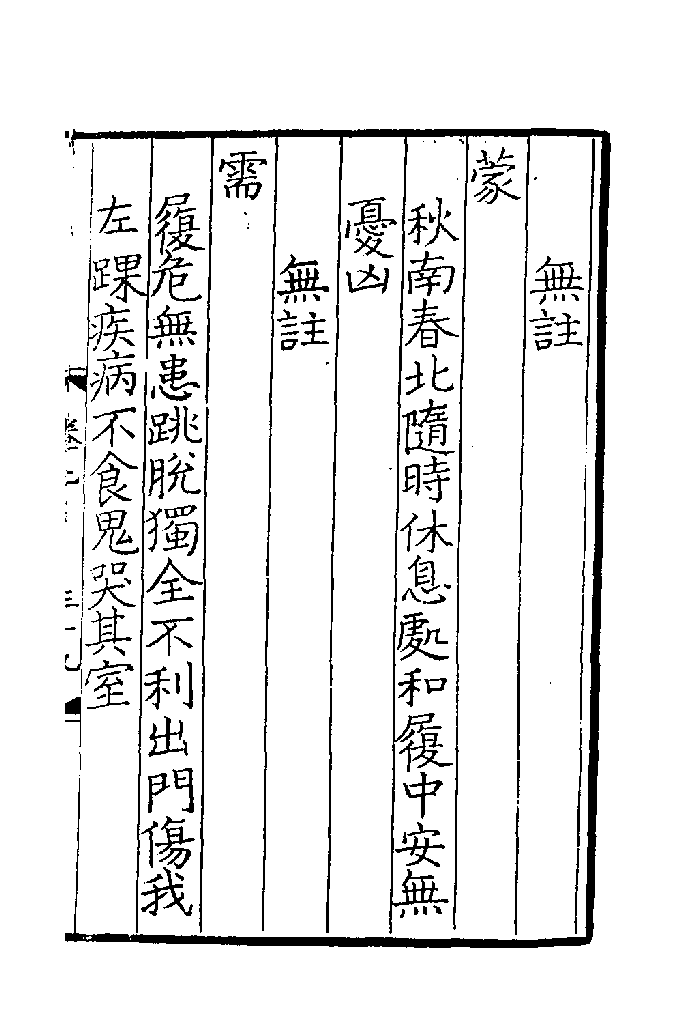 無註
蒙
秋南春北隨時休息處和履中安無
憂凶
無註
需
履危無患跳脫獨全不利出門傷我
左踝疾病不食鬼哭其室